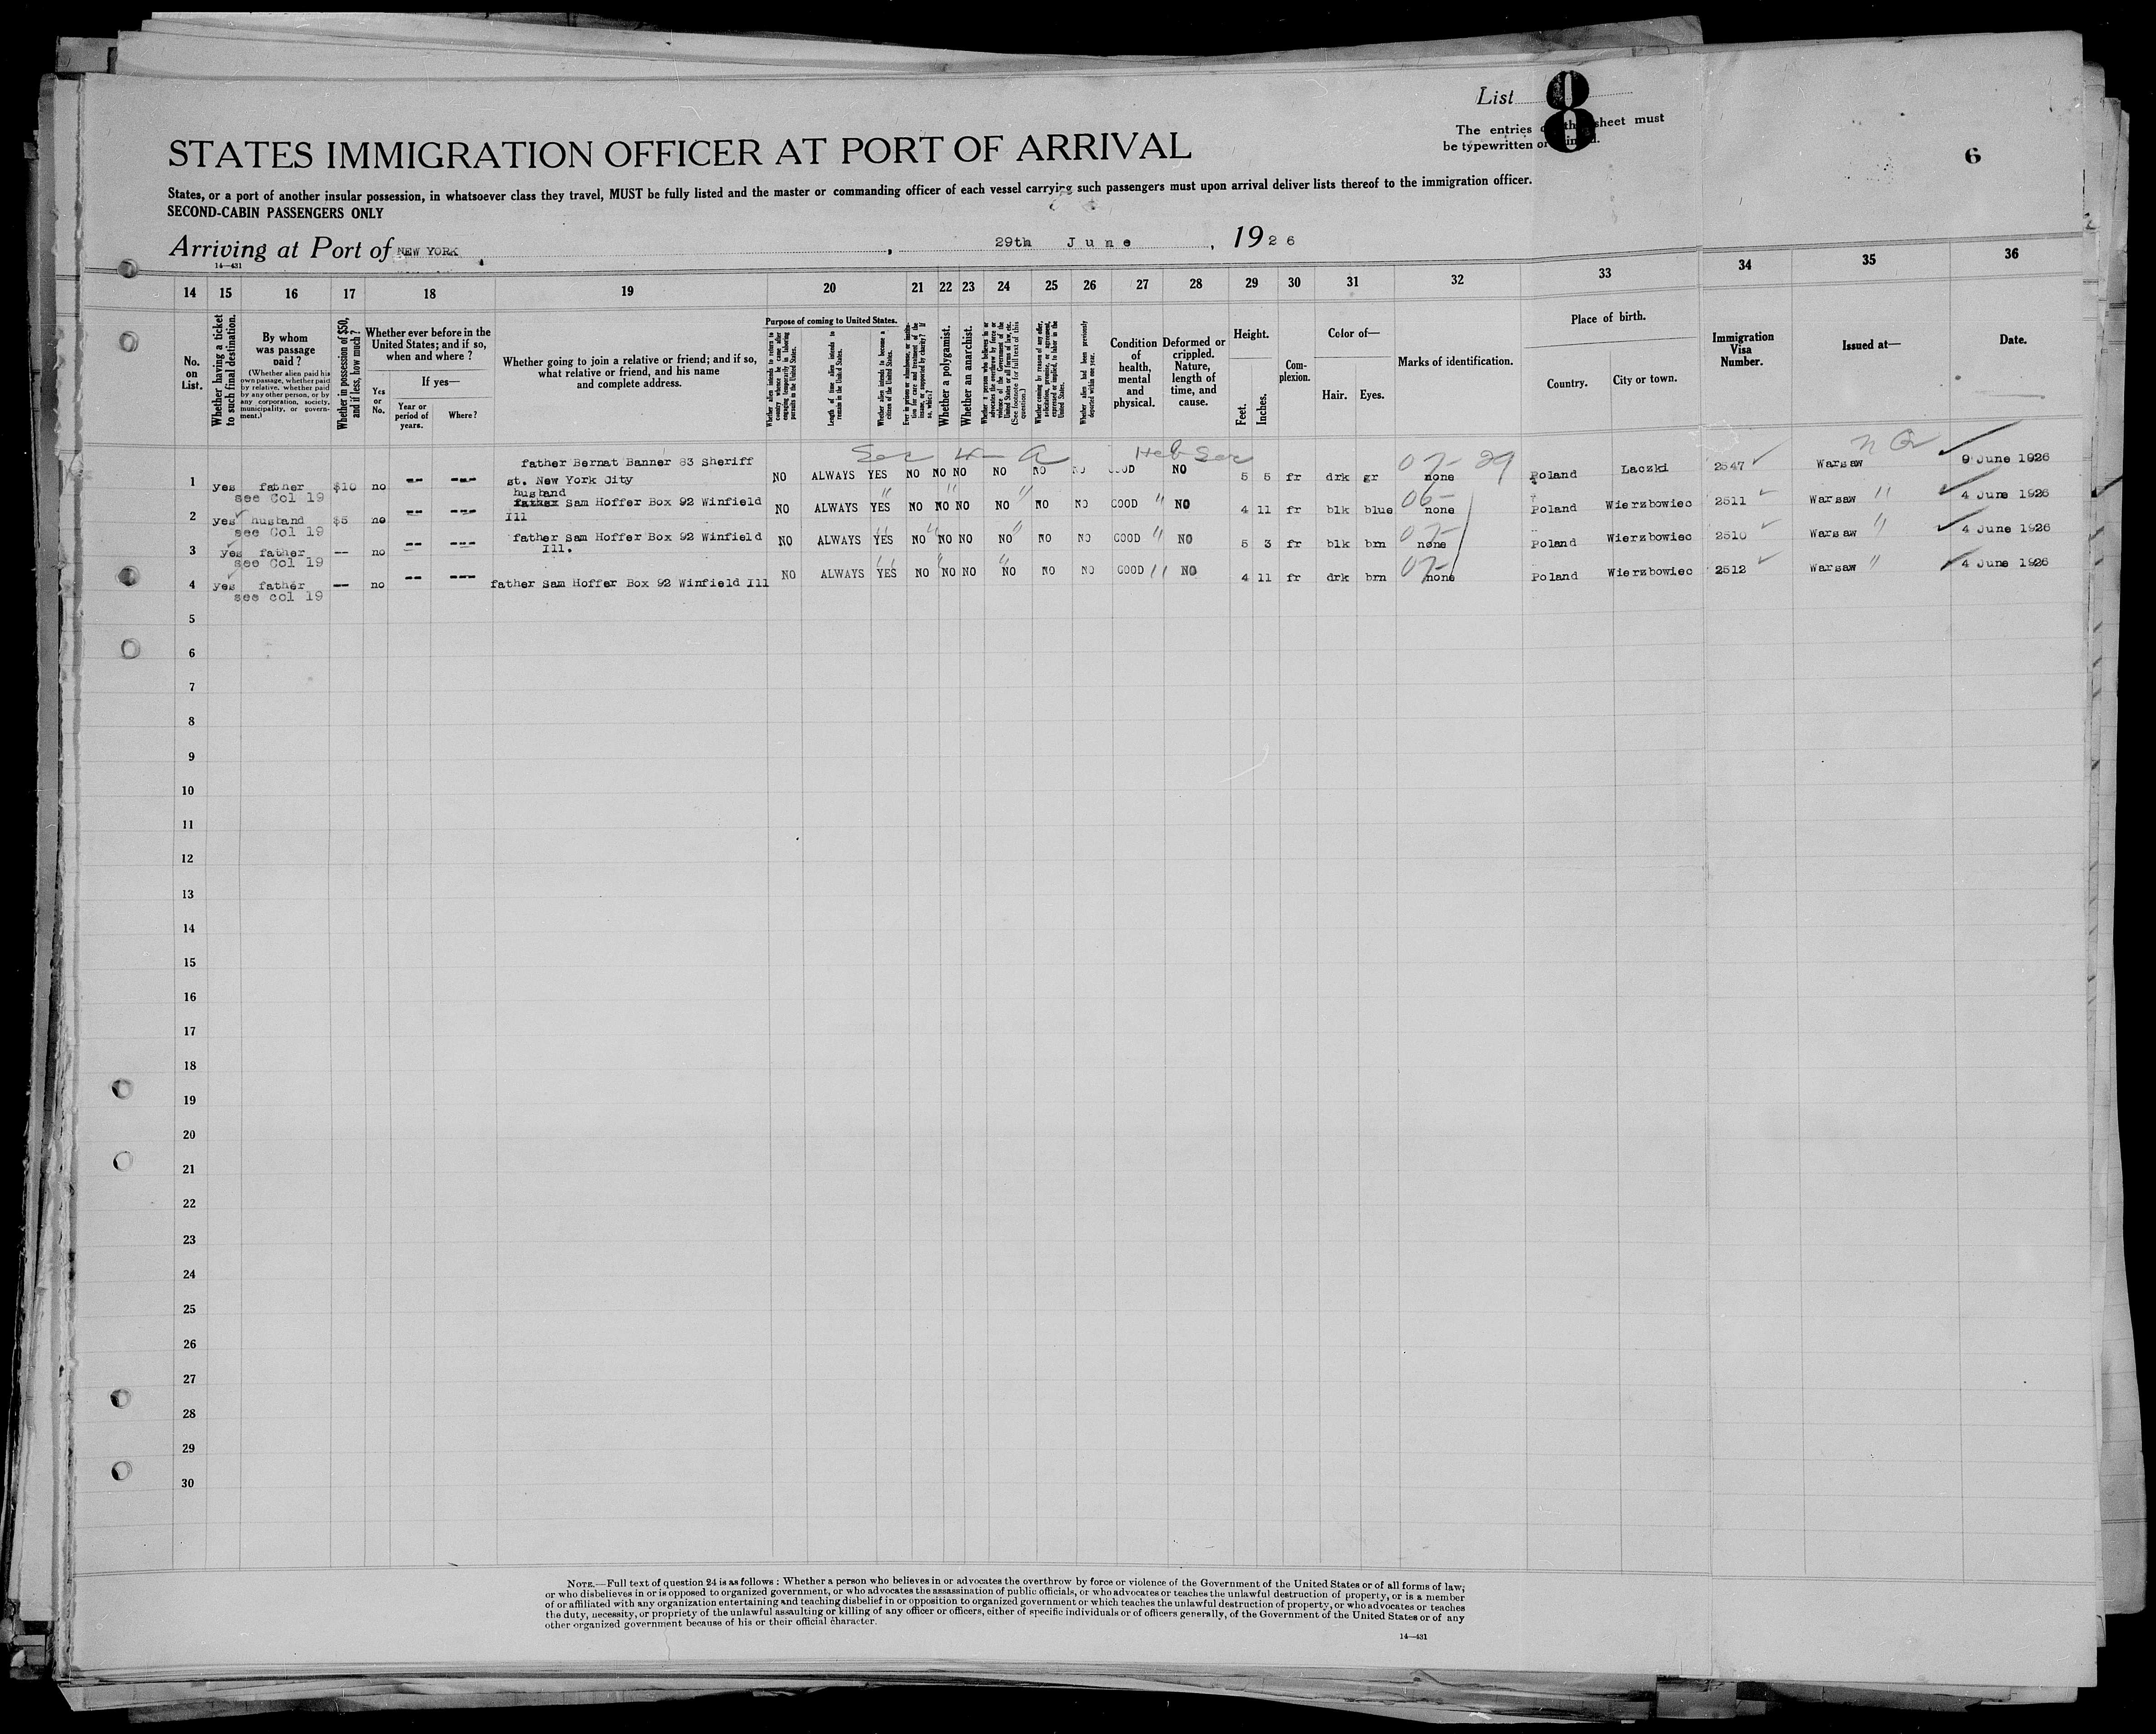 List 8
The entries on this sheet must
be typewritten or printed.
6
STATES IMMIGRATION OFFICER AT PORT OF ARRIVAL
States, or a port of another insular possession, in whatsoever class they travel, MUST be fully listed and the master or commanding officer of each vessel carrying such passengers must upon arrival deliver lists thereof to the immigration officer.
SECOND-CABIN PASSENGERS ONLY
Arriving at Port of NEW YORK, 29th June, 1926
14—431
14 15 16 17 18 19 20 21 22 23 24 25 26 27 28 29 30 31 32 33 34 35 36
No. on List.
Whether having a ticket to such final destination.
By whom was passage paid?
(Whether alien paid his own passage, whether paid by relative, whether paid by any other person, or by any corporation, society, municipality, or government.)
Whether in possession of $50, and if less, how much?
Whether ever before in the United States; and if so, when and where?
Yes or No.
If yes—
Year or period of years.
Where?
Whether going to join a relative or friend; and if so, what relative or friend, and his name and complete address.
Purpose of coming to United States.
Whether alien intends to return to country whence he came after engaging temporarily in laboring pursuits in the United States.
Length of time alien intends to remain in the United States.
Whether alien intends to become a citizen of the United States.
Ever in prison or almshouse, or institution for care and treatment of the insane, or supported by charity? If so, which?
Whether a polygamist.
Whether an anarchist.
Whether a person who believes in or advocates the overthrow by force or violence of the Government of the United States or all forms of law, etc. (See footnote for full text of this question.)
Whether coming by reason of any offer, solicitation, promise, or agreement, expressed or implied, to labor in the United States.
Whether alien had been previously deported within one year.
Condition of health, mental and physical.
Deformed or crippled. Nature, length of time, and cause.
Height.
Feet.
Inches.
Complexion.
Color of—
Hair. Eyes.
Marks of identification.
Place of birth.
Country. City or town.
Immigration Visa Number.
Issued at—
Date.
Sec 4 – a Heb Sec 07- 29
1 yes father see Col 19 $10 no -- --- father Bernat Banner 83 Sheriff st. New York City NO ALWAYS YES NO NO NO NO NO NO GOOD NO 5 5 fr drk gr none Poland Laczki 2547 Warsaw 9 June 1926
2 yes husband see Col 19 $5 no -- --- husband father Sam Hoffer Box 92 Winfield Ill NO ALWAYS YES " NO NO NO " NO " NO NO GOOD " NO 4 11 fr blk blue 06- none Poland Wierzbowiec 2511 Warsaw " 4 June 1926
3 yes father see Col 19 -- no -- --- father Sam Hoffer Box 92 Winfield Ill. NO ALWAYS YES " NO " NO NO NO " NO NO GOOD " NO 5 3 fr blk brn 07- none Poland Wierzbowiec 2510 Warsaw " 4 June 1926
4 yes father see col 19 -- no -- --- father Sam Hoffer Box 92 Winfield Ill NO ALWAYS YES " NO " NO NO NO " NO NO GOOD " NO 4 11 fr drk brn 07- none Poland Wierzbowiec 2512 Warsaw " 4 June 1926
5
6
7
8
9
10
11
12
13
14
15
16
17
18
19
20
21
22
23
24
25
26
27
28
29
30
NOTE.—Full text of question 24 is as follows: Whether a person who believes in or advocates the overthrow by force or violence of the Government of the United States or of all forms of law;
or who disbelieves in or is opposed to organized government, or who advocates the assassination of public officials, or who advocates or teaches the unlawful destruction of property, or is a member
of or affiliated with any organization entertaining and teaching disbelief in or opposition to organized government or which teaches the unlawful destruction of property, or who advocates or teaches
the duty, necessity, or propriety of the unlawful assaulting or killing of any officer or officers, either of specific individuals or of officers generally, of the Government of the United States or of any
other organized government because of his or their official character.
14—431